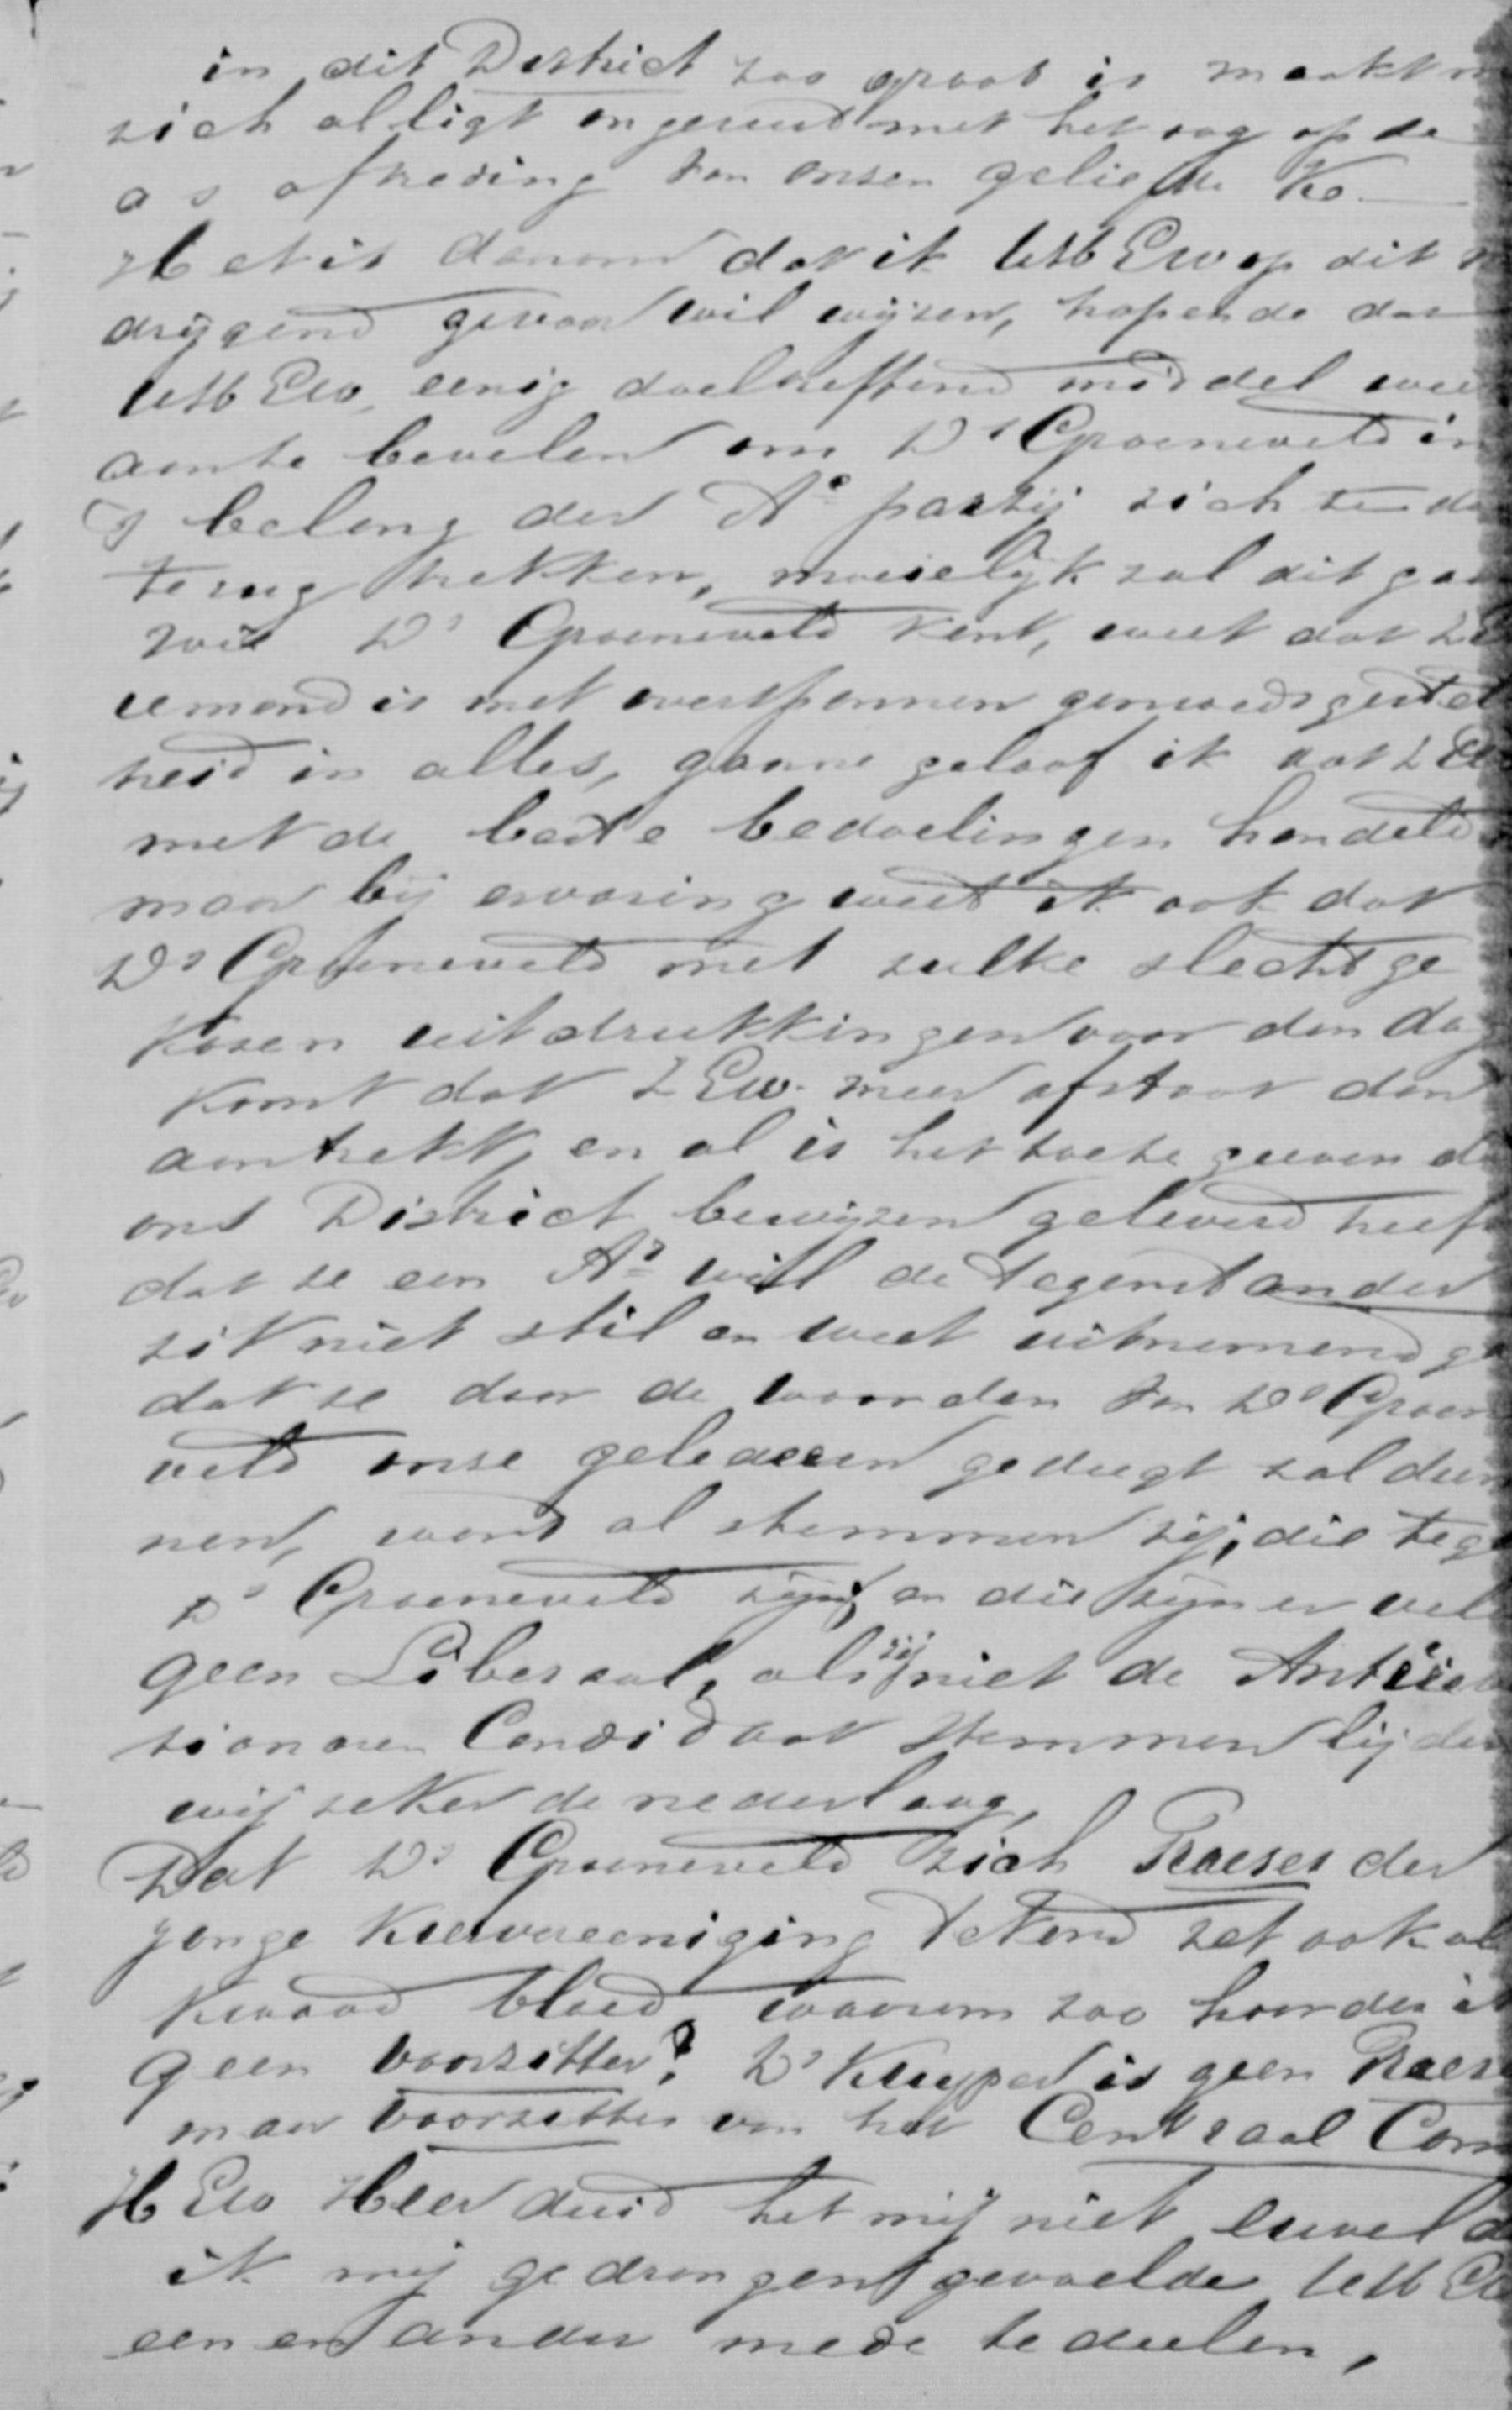 in dit District zoo groot is maakt
zich alligt ongerust met het oog op de
a s aftreding van onzen geliefde Ke
Het is daarom dat ik UHEw op dit
dreigend gevaar wil wijzen, hopende dat
UHEw, eenig doeltreffend middel weet
aan te bevelen om Ds Groeneveld in
's belang der Ae partij zich
terug trekken, moeielijk zal dit gaan
wie Ds Groeneveld kent, weet dat
iemand is met overspannen gemoedsgesteld
heid in alles, gaarne geloof ik dat ZEw
met de beste bedoelingen handeld
maar bij ervaring weet ik ook dat
Ds Groeneveld met zulke slecht ge
kozen uitdrukkingen voor den dag
komt dat ZEw. meer afstoot dan
aantrekt, en al is het toe te geeven
ons District bewijzen geleverd heeft
dat ze een Ar wil de tegenstander
zit niet stil en weet uitnemend
dat ze door de woorden van Ds Groene
veld onze gelederen gedugt zal dun
nen, want al stemmen zij, die tegen
Ds Groeneveld zijn, en die zijn er veel
geen Liberaal, als zij niet de Antirevo
tionaren Candidaat stemmen lijden
wij zeker de nederlaag,
Dat Ds Groeneveld zich Praeses der
jonge Kiesvereeniging tekend zet ook al
kwaad bloed, waarom zoo hoorde ik
geen voorzitter? Dr Kuyper is geen Praeses
maar voorzitter van het Centraal Com
HEw Heer duid het mij niet euvel
ik mij gedrongen gevoelde UHEw
een en ander mede te deelen,